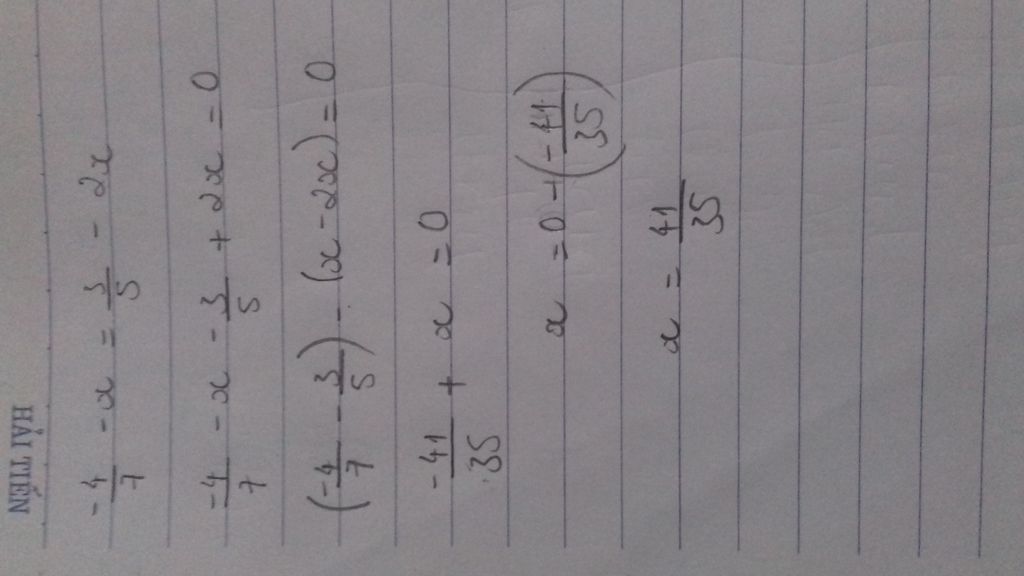 HẢI TIẾN
-4/7 - x = 3/5 - 2x
-4/7 - x - 3/5 + 2x = 0
(-4/7 - 3/5) - (x - 2x) = 0
-41/35 + x = 0
x = 0 - (-41/35)
x = 41/35